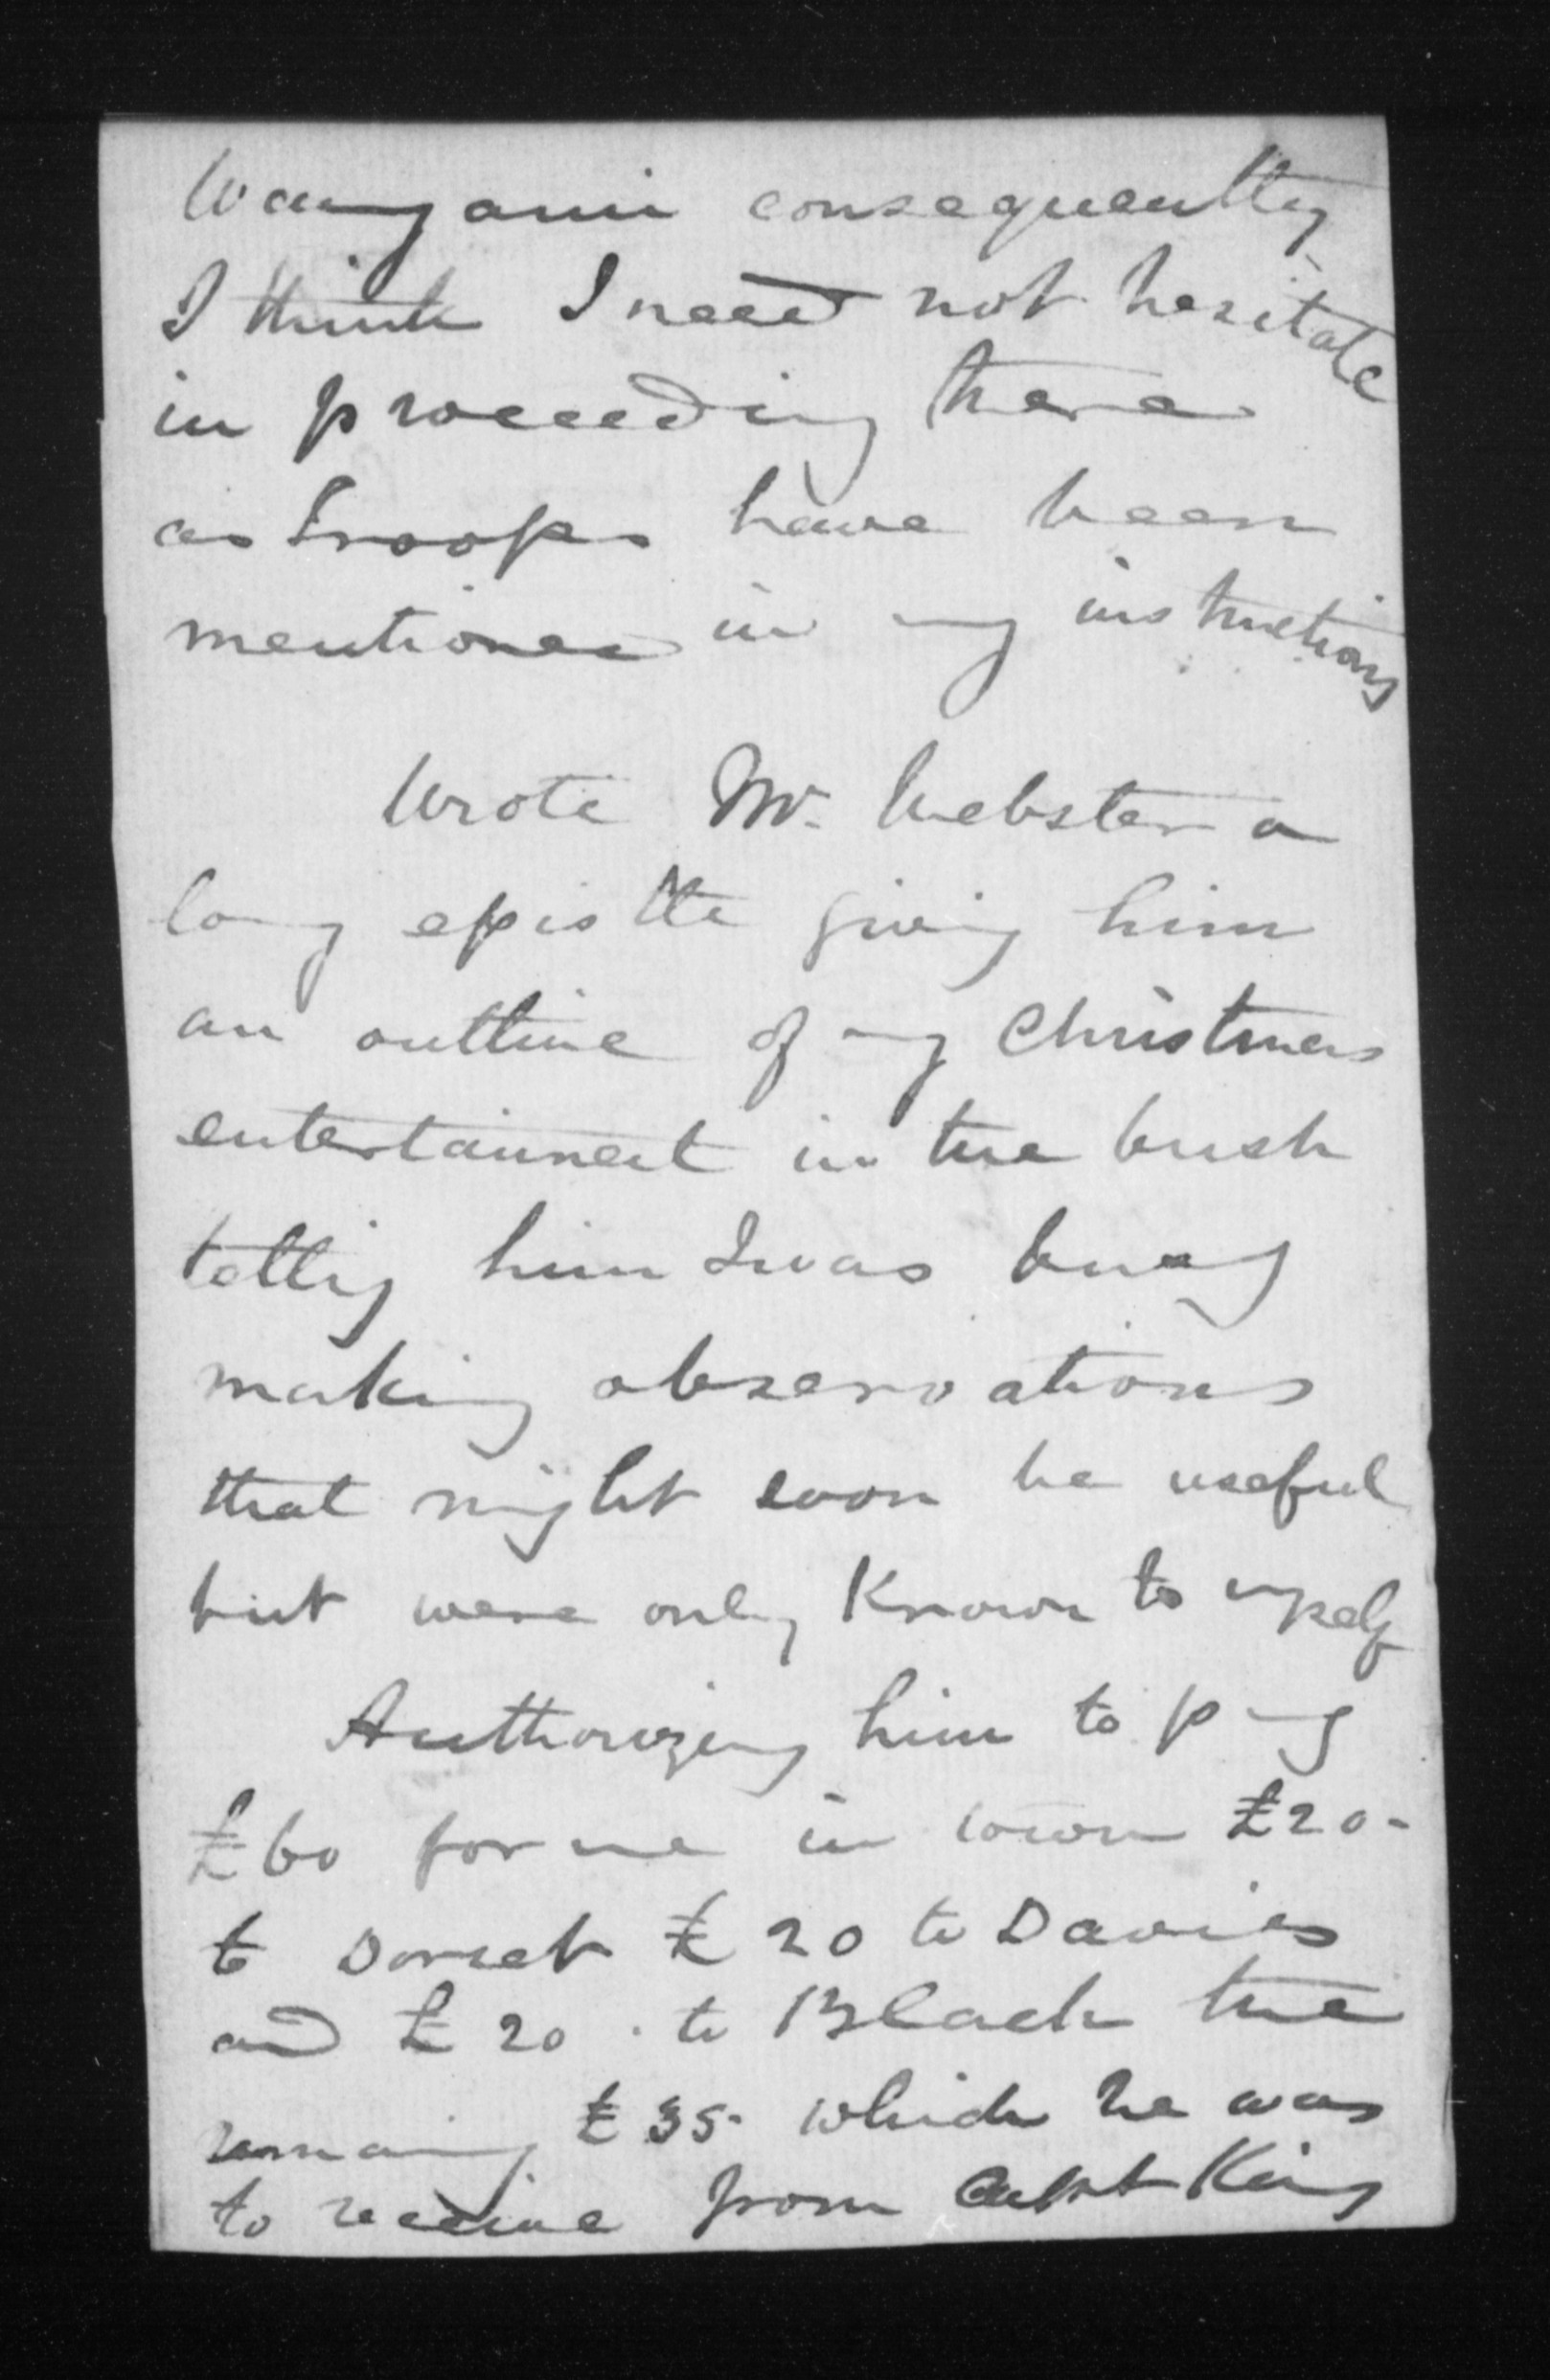 Wanganui consequently
I think I need not hesitate
in proceeding there
as troops have been
mentioned in my instructions
Wrote Mr. Webster a
long epistle giving him
an outline of my Christmas
entertainment in the bush
telling him I was busy
making observations
that might soon be useful
but were only known to myself
Authorizing him to pay
£60 for me in town £20-
to Dorset £20 to Davies
and £20 to Black the
remaining £35 which he was
to receive from Capt King